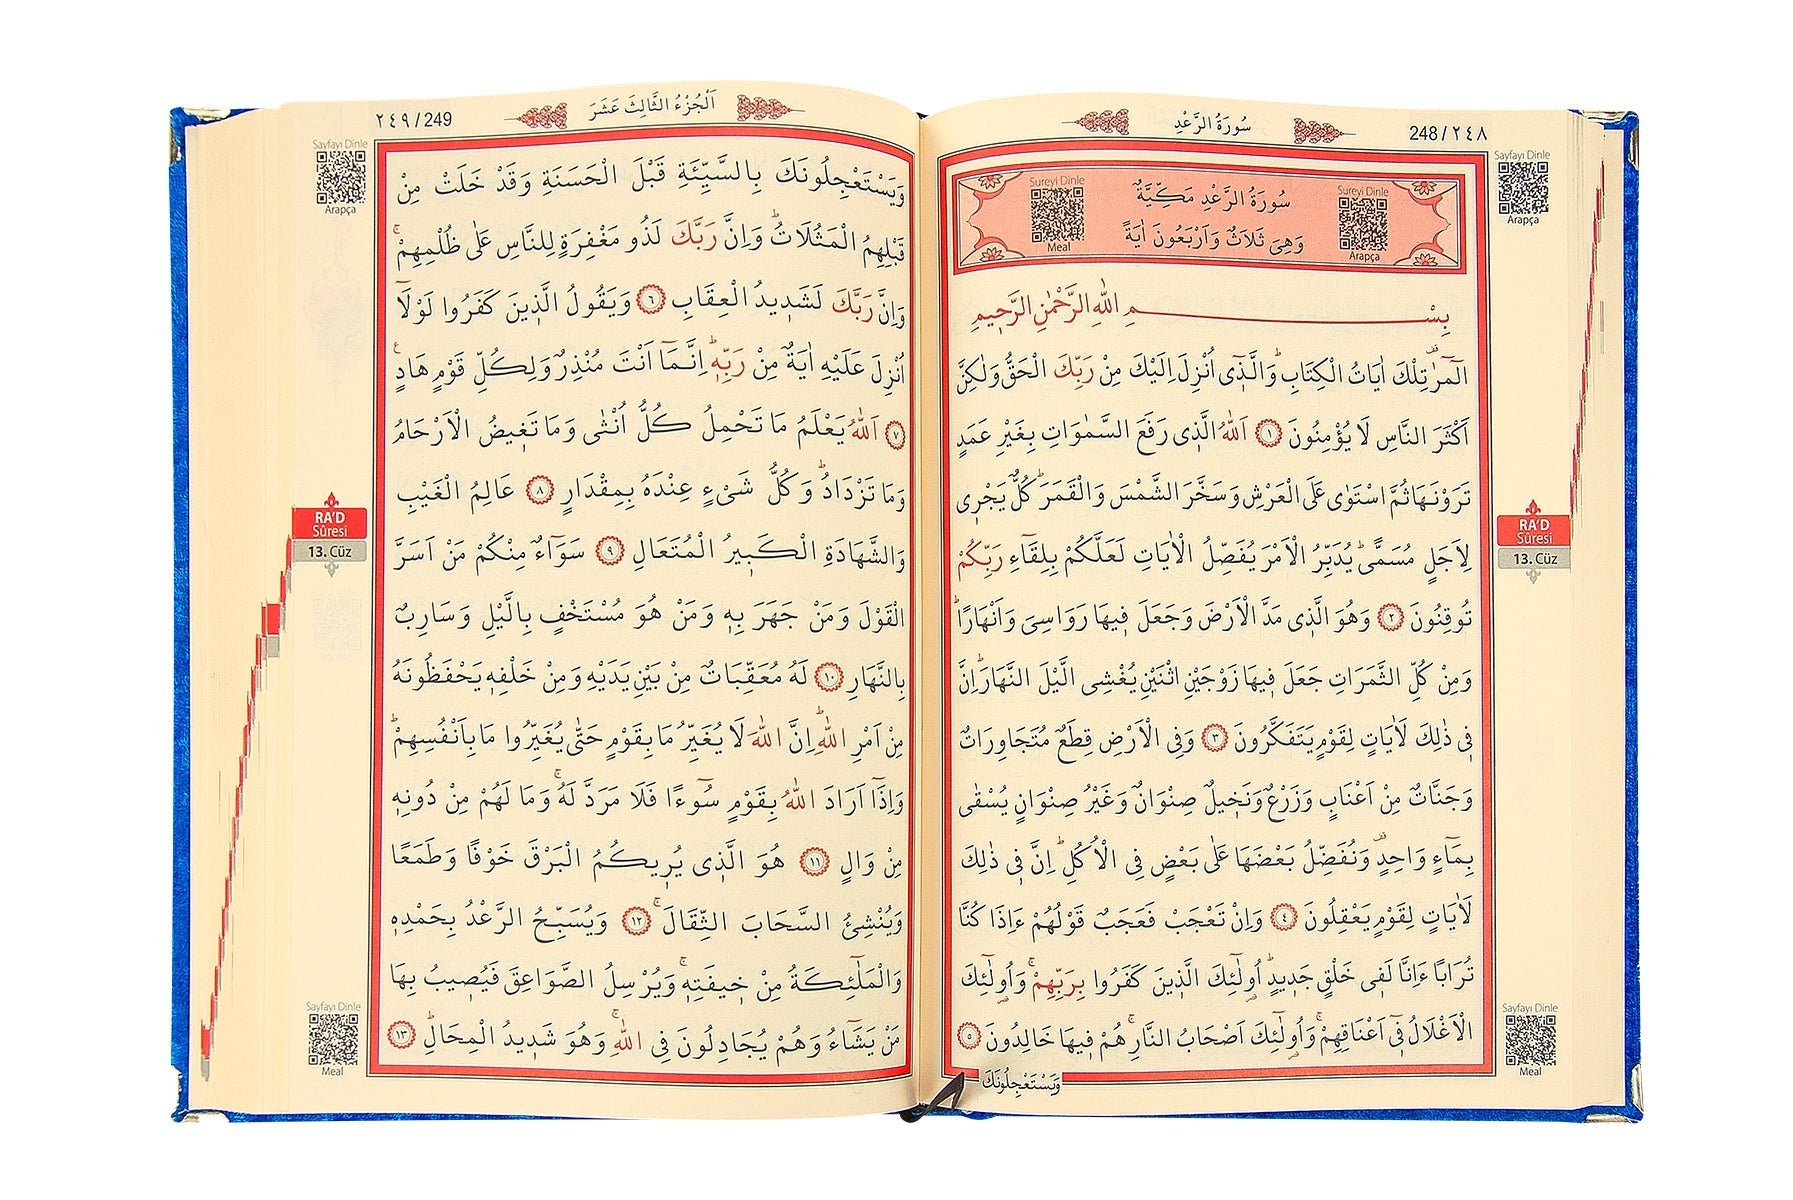 سُورَةُ الرَّعْدِ
248 / ٢٤٨
Sayfayı Dinle
Arapça
Sureyi Dinle
Meal
سُورَةُ الرَّعْدِ مَكِّيَّةٌ
وَهِىَ ثَلَاثٌ وَاَرْبَعُونَ اٰيَةً
Sureyi Dinle
Arapça
بِسْمِ اللّٰهِ الرَّحْمٰنِ الرَّحٖيمِ
الٓمٓرٰ تِلْكَ اٰيَاتُ الْكِتَابِۜ وَالَّذٖٓى اُنْزِلَ اِلَيْكَ مِنْ رَبِّكَ الْحَقُّ وَلٰكِنَّ
اَكْثَرَ النَّاسِ لَا يُؤْمِنُونَ ﴿١﴾ اَللّٰهُ الَّذٖى رَفَعَ السَّمٰوَاتِ بِغَيْرِ عَمَدٍ
تَرَوْنَهَا ثُمَّ اسْتَوٰى عَلَى الْعَرْشِ وَسَخَّرَ الشَّمْسَ وَالْقَمَرَۜ كُلٌّ يَجْرٖى
لِاَجَلٍ مُسَمًّىۜ يُدَبِّرُ الْاَمْرَ يُفَصِّلُ الْاٰيَاتِ لَعَلَّكُمْ بِلِقَٓاءِ رَبِّكُمْ
تُوقِنُونَ ﴿٢﴾ وَهُوَ الَّذٖى مَدَّ الْاَرْضَ وَجَعَلَ فٖيهَا رَوَاسِىَ وَاَنْهَارًاۜ
وَمِنْ كُلِّ الثَّمَرَاتِ جَعَلَ فٖيهَا زَوْجَيْنِ اثْنَيْنِ يُغْشِى الَّيْلَ النَّهَارَۜ اِنَّ
فٖى ذٰلِكَ لَاٰيَاتٍ لِقَوْمٍ يَتَفَكَّرُونَ ﴿٣﴾ وَفِى الْاَرْضِ قِطَعٌ مُتَجَاوِرَاتٌ
وَجَنَّاتٌ مِنْ اَعْنَابٍ وَزَرْعٌ وَنَخٖيلٌ صِنْوَانٌ وَغَيْرُ صِنْوَانٍ يُسْقٰى
بِمَٓاءٍ وَاحِدٍ وَنُفَضِّلُ بَعْضَهَا عَلٰى بَعْضٍ فِى الْاُكُلِۜ اِنَّ فٖى ذٰلِكَ
لَاٰيَاتٍ لِقَوْمٍ يَعْقِلُونَ ﴿٤﴾ وَاِنْ تَعْجَبْ فَعَجَبٌ قَوْلُهُمْ ءَاِذَا كُنَّا
تُرَابًا ءَاِنَّا لَفٖى خَلْقٍ جَدٖيدٍۜ اُولٰٓئِكَ الَّذٖينَ كَفَرُوا بِرَبِّهِمْۚ وَاُولٰٓئِكَ
الْاَغْلَالُ فٖٓى اَعْنَاقِهِمْۚ وَاُولٰٓئِكَ اَصْحَابُ النَّارِۚ هُمْ فٖيهَا خَالِدُونَ ﴿٥﴾
وَيَسْتَعْجِلُونَكَ
RA'D
Sûresi
13. Cüz
Sayfayı Dinle
Meal
249 / ٢٤٩
اَلْجُزْءُ الثَّالِثَ عَشَرَ
Sayfayı Dinle
Arapça
وَيَسْتَعْجِلُونَكَ بِالسَّيِّئَةِ قَبْلَ الْحَسَنَةِ وَقَدْ خَلَتْ مِنْ
قَبْلِهِمُ الْمَثُلَاتُۜ وَاِنَّ رَبَّكَ لَذُو مَغْفِرَةٍ لِلنَّاسِ عَلٰى ظُلْمِهِمْۚ
وَاِنَّ رَبَّكَ لَشَدٖيدُ الْعِقَابِ ﴿٦﴾ وَيَقُولُ الَّذٖينَ كَفَرُوا لَوْلَٓا
اُنْزِلَ عَلَيْهِ اٰيَةٌ مِنْ رَبِّهٖۜ اِنَّمَٓا اَنْتَ مُنْذِرٌ وَلِكُلِّ قَوْمٍ هَادٍ
﴿٧﴾ اَللّٰهُ يَعْلَمُ مَا تَحْمِلُ كُلُّ اُنْثٰى وَمَا تَغٖيضُ الْاَرْحَامُ
وَمَا تَزْدَادُۜ وَكُلُّ شَىْءٍ عِنْدَهُ بِمِقْدَارٍ ﴿٨﴾ عَالِمُ الْغَيْبِ
وَالشَّهَادَةِ الْكَبٖيرُ الْمُتَعَالِ ﴿٩﴾ سَوَٓاءٌ مِنْكُمْ مَنْ اَسَرَّ
الْقَوْلَ وَمَنْ جَهَرَ بِهٖ وَمَنْ هُوَ مُسْتَخْفٍ بِالَّيْلِ وَسَارِبٌ
بِالنَّهَارِ ﴿١٠﴾ لَهُ مُعَقِّبَاتٌ مِنْ بَيْنِ يَدَيْهِ وَمِنْ خَلْفِهٖ يَحْفَظُونَهُ
مِنْ اَمْرِ اللّٰهِۜ اِنَّ اللّٰهَ لَا يُغَيِّرُ مَا بِقَوْمٍ حَتّٰى يُغَيِّرُوا مَا بِاَنْفُسِهِمْۜ
وَاِذَٓا اَرَادَ اللّٰهُ بِقَوْمٍ سُٓوءًا فَلَا مَرَدَّ لَهُۚ وَمَا لَهُمْ مِنْ دُونِهٖ
مِنْ وَالٍ ﴿١١﴾ هُوَ الَّذٖى يُرٖيكُمُ الْبَرْقَ خَوْفًا وَطَمَعًا
وَيُنْشِئُ السَّحَابَ الثِّقَالَۚ ﴿١٢﴾ وَيُسَبِّحُ الرَّعْدُ بِحَمْدِهٖ
وَالْمَلٰٓئِكَةُ مِنْ خٖيفَتِهٖۚ وَيُرْسِلُ الصَّوَاعِقَ فَيُصٖيبُ بِهَا
مَنْ يَشَٓاءُ وَهُمْ يُجَادِلُونَ فِى اللّٰهِۚ وَهُوَ شَدٖيدُ الْمِحَالِۜ ﴿١٣﴾
RA'D
Sûresi
13. Cüz
Sayfayı Dinle
Meal